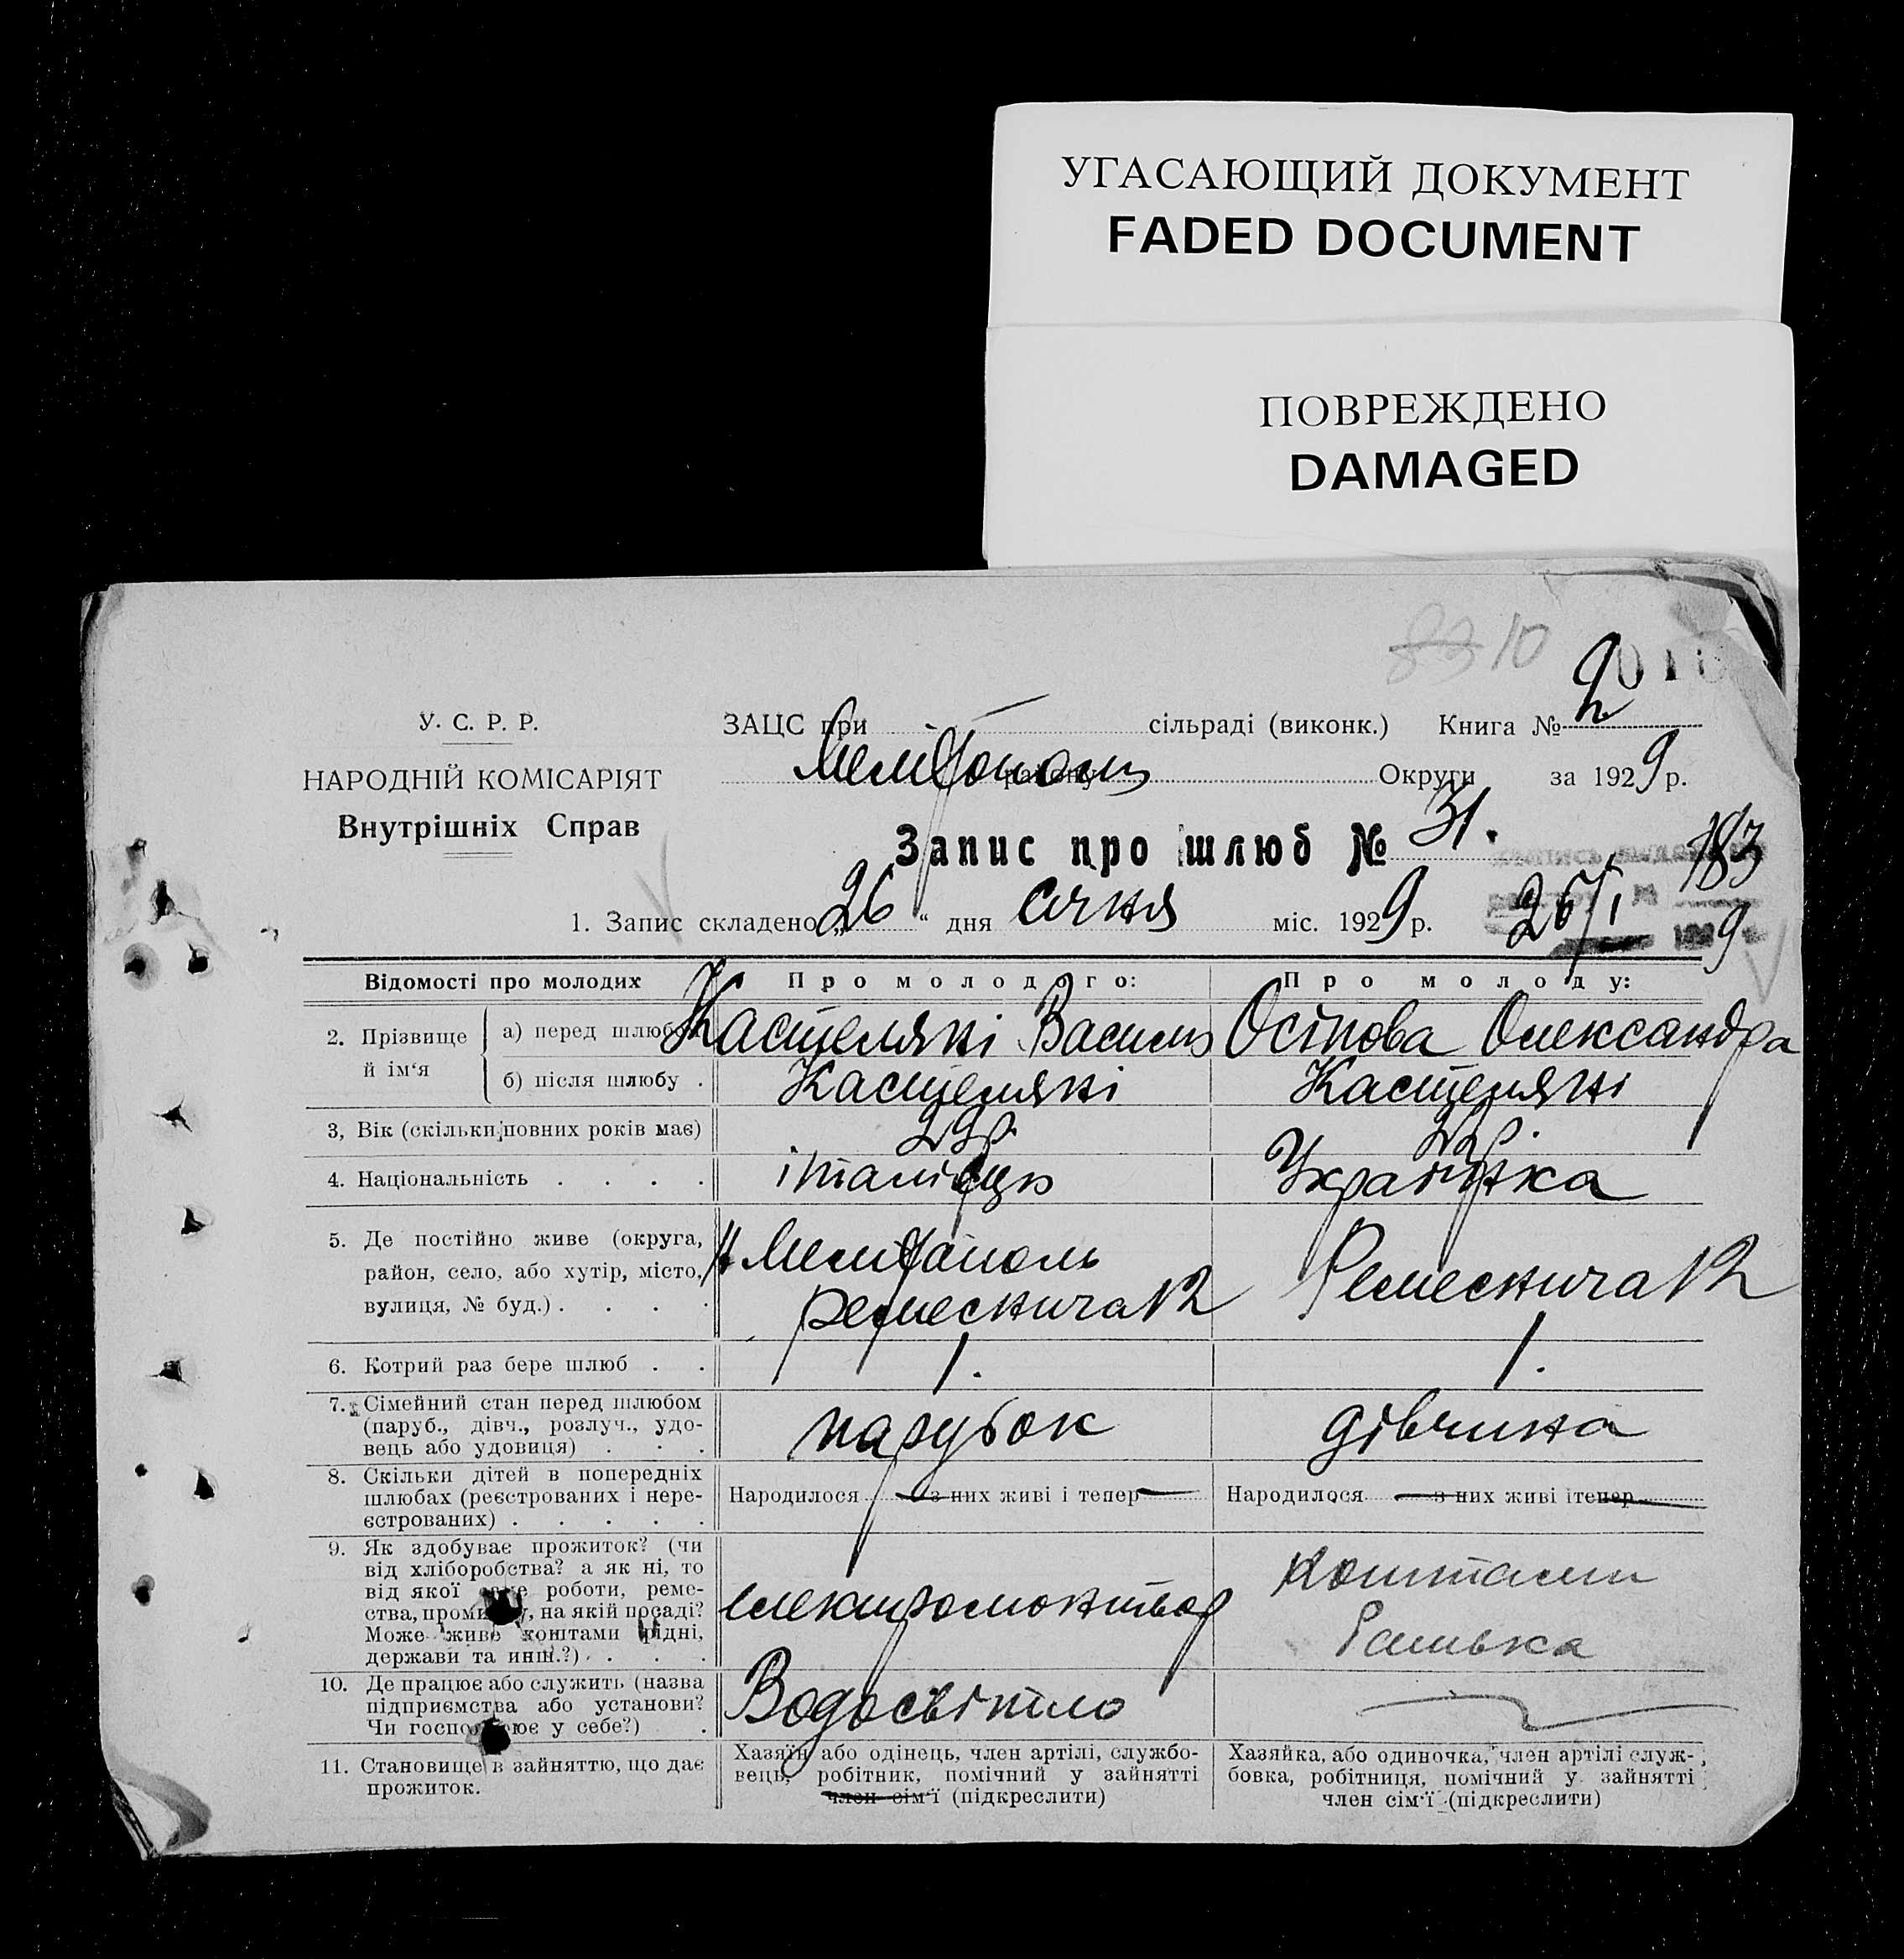 УГАСАЮЩИЙ ДОКУМЕНТ
FADED DOCUMENT
ПОВРЕЖДЕНО
DAMAGED
83 10
У. С. Р. Р.
НАРОДНІЙ КОМІСАРІЯТ
Внутрішніх Справ
ЗАЦС при сільраді (виконк.) Книга № 2
Мелітополь району Округи за 1929 р.
Запис про шлюб № 31.
183
1. Запис складено „26“ дня січня міс. 1929 р.
26/I 1929
Відомості про молодих Про молодого: Про молоду:
2. Прізвище й ім‘я
а) перед шлюбом Кастеляні Василь Осіпова Олександра
б) після шлюбу . Кастеляні Кастеляні
3, Вік (скільки повних років має) 22р. 22р.
4. Національність . . . . італієць Українка
5. Де постійно живе (округа, район, село, або хутір, місто, вулиця, № буд.) . . . .
м Мелітополь
Ремеснича 12
Ремеснича 12
6. Котрий раз бере шлюб . . 1. 1.
7. Сімейний стан перед шлюбом
(паруб., дівч., розлуч., удо-
вець або удовиця) . . .
парубок дівчина
8. Скільки дітей в попередніх
шлюбах (реєстрованих і нере-
єстрованих) . . . . .
Народилося — з них живі і тепер — Народилося — з них живі і тепер —
9. Як здобуває прожиток? (чи
від хліборобства? а як ні, то
від якої роботи, реме-
ства, промислу, на якій посаді?
Може живе коштами рідні,
держави та инш.?) . . .
електромонтьор
коштами
батька
10. Де працює або служить (назва
підприємства або установи?
Чи господарює у себе?) .
Водосвітло
11. Становище в зайняттю, що дає
прожиток.
Хазяїн або одінець, член артілі, службо-
вець, робітник, помічний у зайнятті
член сім‘ї (підкреслити)
Хазяйка, або одиночка, член артілі служ-
бовка, робітниця, помічний у зайнятті
член сім‘ї (підкреслити)